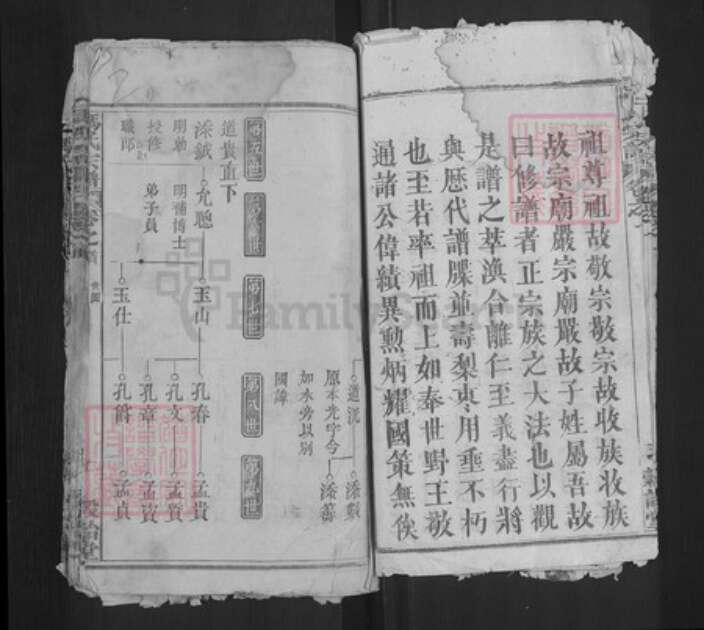 祖尊祖故敬宗敬宗故收族收族
故宗廟嚴宗廟嚴故子姓屬吾故
曰修譜者正宗族之大法也以觀
是譜之萃渙合離仁至義盡行將
與歷代譜牒並壽梨枣用垂不朽
也至若率祖而上如奉世野王敬
通諸公偉績異勳炳耀國策無俟
道洸
原本光字今
如水旁以別
國諱
第五世
第六世
第七世
第八世
第九世
道貴直下
添鉞
明勅
授修
職郎
允聰
明補博士
弟子員
玉山
玉仕
孔春
孔文
孔章
孔爵
孟貴
孟賢
孟資
孟貞
FamilySearch